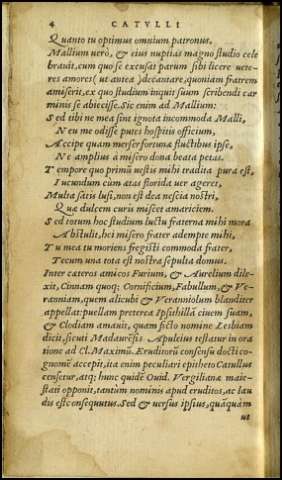 4 CATVLLI
Quanto tu optimus omnium patronus.
Mallium uerò, & eius nuptias magno studio cele
brauit, cum quo sè excusat parum sibi licere uete-
res amores (ut antea) decantare, quoniam fratrem
amiserit, ex quo studium inquit suum scribendi car
minis se abiecisse. Sic enim ad Mallium:
Sed tibi ne mea sint ignota incommoda Malli,
Neu me odisse putes hospitis officium,
Accipe quam merser fortunæ fluctibus ipse,
Ne amplius a misero dona beata petas.
Tempore quo primũ uestis mihi tradita pura est,
Iucundum cum ætas florida uer ageret,
Multa satis lusi, non est dea nescia nostri,
Quæ dulcem curis miscet amariciem.
Sed totum hoc studium luctu fraterna mihi mors
Abstulit, hei misero frater adempte mihi,
Tu mea tu moriens fregisti commoda frater,
Tecum una tota est nostra sepulta domus.
Inter cæteros amicos Furium, & Aurelium dile-
xit, Cinnam quoq; Cornificium, Fabullum, & Ve-
ranniam, quem alicubi & Veranniolum blanditer
appellat: puellam præterea Ipsithillā ciuem suam,
& Clodiam amauit, quam ficto nomine Lesbiam
dicit, sicuti Madaurēsis Apuleius testatur in ora
tione ad Cl. Maximū. Eruditorū consensu docti co-
gnomē accepit, ita enim peculiari epitheto Catullus
censetur, atq; hunc quidē Ouid. Vergilianæ maie-
stati opponit, tantùm nominis apud eruditos, ac lau
dis est consequutus. Sed & uersus ipsius, quāquam
ut